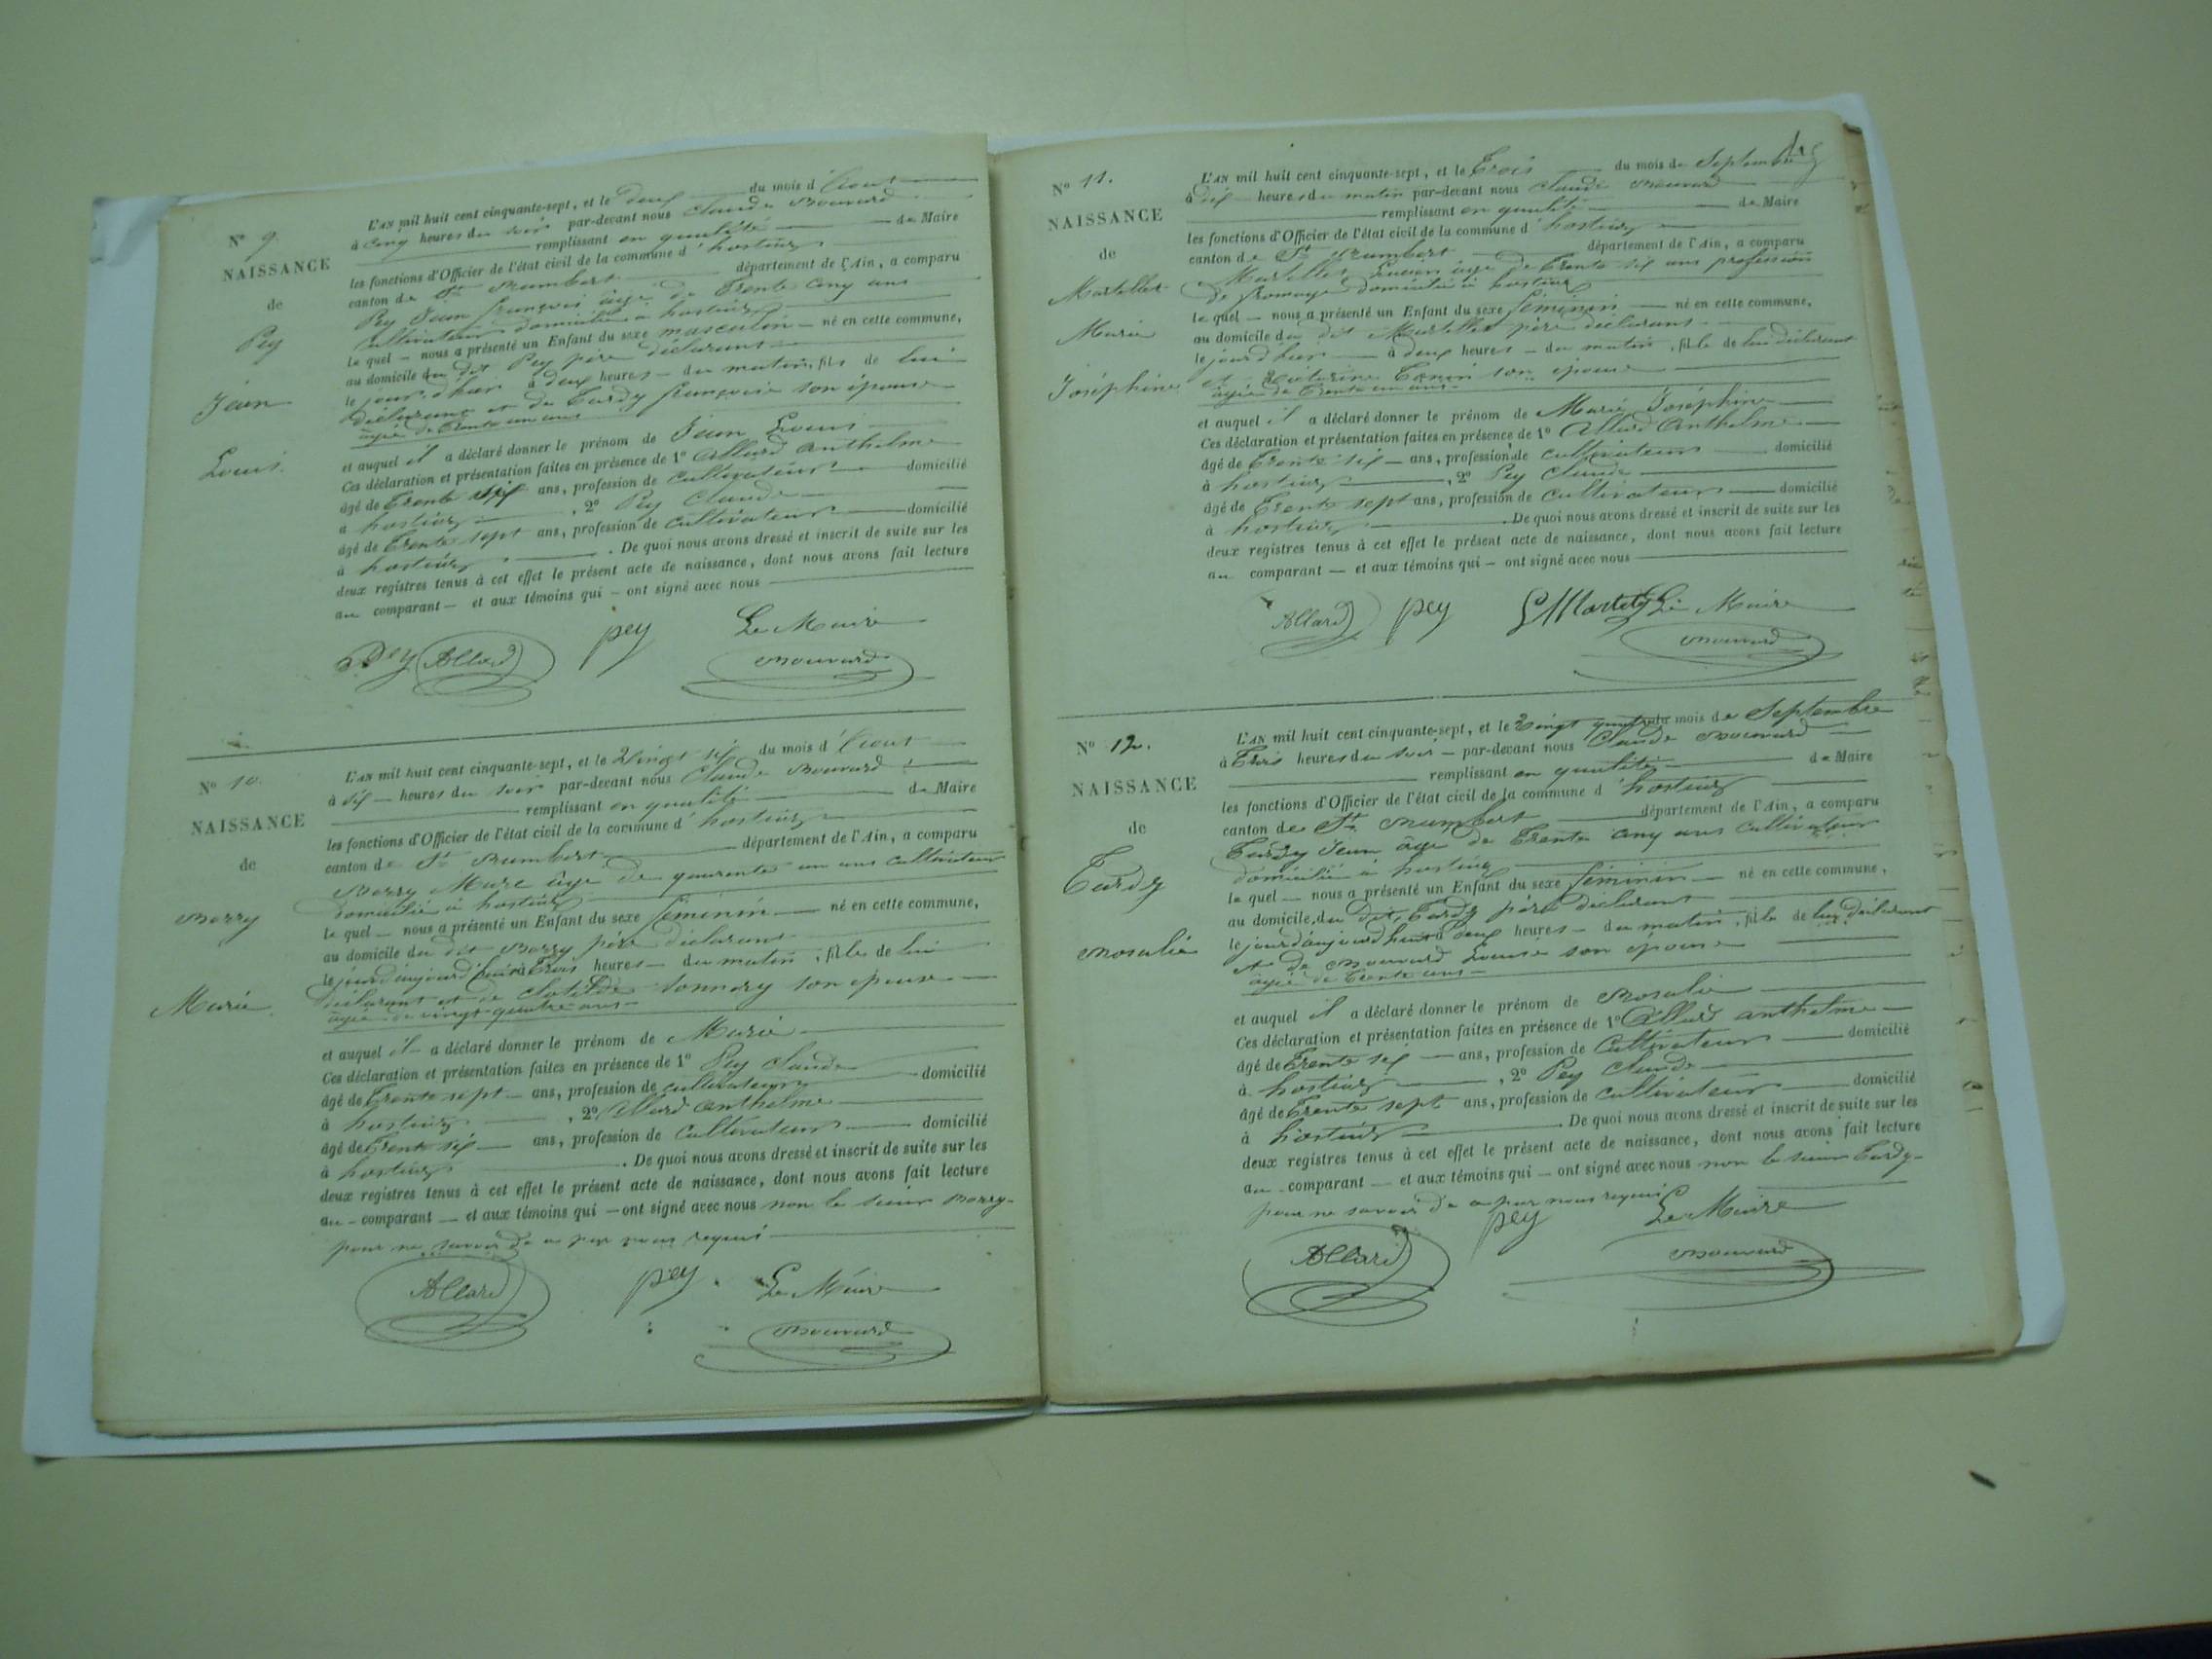 N° 9.
NAISSANCE
de
Pey
Jean
Louis.
L'AN mil huit cent cinquante-sept, et le deux du mois d'août
à cinq heures du soir par-devant nous Claude Bouvard
remplissant en qualité de Maire
les fonctions d'Officier de l'état civil de la commune d'hostiaz
canton de St Rambert département de l'Ain, a comparu
Pey Jean françois âgé de trente cinq ans
cultivateur domicilié à hostiaz
le quel nous a présenté un Enfant du sexe masculin né en cette commune,
au domicile du dit Pey père déclarant
le jour d'hier à deux heures du matin, fils de lui
déclarant et de Tardy françoise son épouse
âgée de trente un ans
et auquel il a déclaré donner le prénom de Jean Louis
Ces déclaration et présentation faites en présence de 1° Allard anthelme
âgé de trente six ans, profession de cultivateur domicilié
à hostiaz, 2° Pey Claude
âgé de trente sept ans, profession de cultivateur domicilié
à hostiaz. De quoi nous avons dressé et inscrit de suite sur les
deux registres tenus à cet effet le présent acte de naissance, dont nous avons fait lecture
au comparant et aux témoins qui ont signé avec nous
Pey Allard pey Le Maire
Bouvard
N° 10.
NAISSANCE
de
Borry
Marie
L'AN mil huit cent cinquante-sept, et le vingt six du mois d'août
à six heures du soir par-devant nous Claude Bouvard
remplissant en qualité de Maire
les fonctions d'Officier de l'état civil de la commune d'hostiaz
canton de St Rambert département de l'Ain, a comparu
Borry Marc âgé de quarante un ans cultivateur
domicilié à hostiaz
le quel nous a présenté un Enfant du sexe féminin né en cette commune,
au domicile du dit Borry père déclarant
le jour d'aujourd'hui à trois heures du matin, fille de lui
déclarant et de Clotilde son épouse
âgée de vingt quatre ans
et auquel il a déclaré donner le prénom de Marie
Ces déclaration et présentation faites en présence de 1° Pey Claude
âgé de trente sept ans, profession de cultivateur domicilié
à hostiaz, 2° Allard anthelme
âgé de trente six ans, profession de cultivateur domicilié
à hostiaz. De quoi nous avons dressé et inscrit de suite sur les
deux registres tenus à cet effet le présent acte de naissance, dont nous avons fait lecture
au comparant et aux témoins qui ont signé avec nous non le sieur Borry
pour ne savoir de ce par nous requis
Allard pey Le Maire
Bouvard
N° 11.
NAISSANCE
de
Martellet
Marie
Joséphine
L'AN mil huit cent cinquante-sept, et le trois du mois de Septembre
à six heures du matin par-devant nous Claude Bouvard
remplissant en qualité de Maire
les fonctions d'Officier de l'état civil de la commune d'hostiaz
canton de St Rambert département de l'Ain, a comparu
Martellet âgé de trente six ans profession
de fromager domicilié à hostiaz
le quel nous a présenté un Enfant du sexe féminin né en cette commune,
au domicile du dit Martellet père déclarant
le jour d'hier à deux heures du matin, fille de lui déclarant
et son épouse
âgée de trente un ans
et auquel il a déclaré donner le prénom de Marie Joséphine
Ces déclaration et présentation faites en présence de 1° Allard Anthelme
âgé de trente six ans, profession de cultivateur domicilié
à hostiaz, 2° Pey Claude
âgé de trente sept ans, profession de cultivateur domicilié
à hostiaz. De quoi nous avons dressé et inscrit de suite sur les
deux registres tenus à cet effet le présent acte de naissance, dont nous avons fait lecture
au comparant et aux témoins qui ont signé avec nous
Allard pey Le Maire
Bouvard
N° 12.
NAISSANCE
de
Tardy
Rosalie
L'AN mil huit cent cinquante-sept, et le vingt quatre du mois de Septembre
à trois heures du soir par-devant nous Claude Bouvard
remplissant en qualité de Maire
les fonctions d'Officier de l'état civil de la commune d'hostiaz
canton de St Rambert département de l'Ain, a comparu
Tardy Jean âgé de trente cinq ans cultivateur
domicilié à hostiaz
le quel nous a présenté un Enfant du sexe féminin né en cette commune,
au domicile du dit Tardy père déclarant
le jour d'aujourd'hui à deux heures du matin, fille de lui déclarant
et de Bouvard Louise son épouse
âgée de trente ans
et auquel il a déclaré donner le prénom de Rosalie
Ces déclaration et présentation faites en présence de 1° Allard anthelme
âgé de trente six ans, profession de cultivateur domicilié
à hostiaz, 2° Pey Claude
âgé de trente sept ans, profession de cultivateur domicilié
à hostiaz. De quoi nous avons dressé et inscrit de suite sur les
deux registres tenus à cet effet le présent acte de naissance, dont nous avons fait lecture
au comparant et aux témoins qui ont signé avec nous non le sieur Tardy
pour ne savoir de ce par nous requis
Allard pey Le Maire
Bouvard